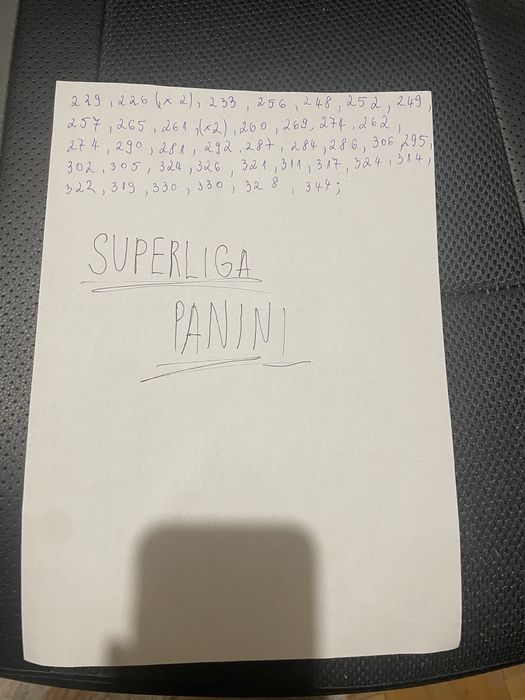 229, 226 (x 2), 233, 256, 248, 252, 249,
257, 265, 261, (x2), 260, 269, 274, 262,
274, 290, 281, 292, 287, 284, 286, 306, 295,
302, 305, 324, 326, 321, 311, 317, 324, 314,
322, 319, 330, 330, 328, 344;
SUPERLIGA
PANINI